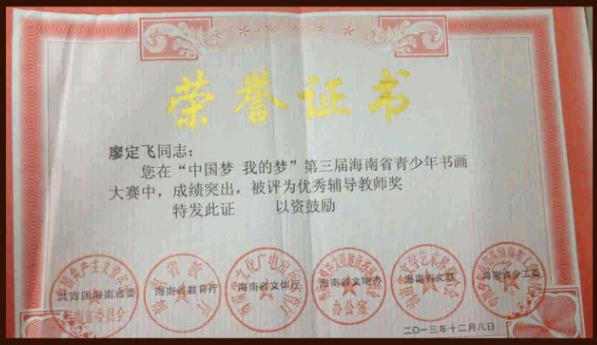 荣誉证书
廖定飞同志：
您在“中国梦 我的梦”第三届海南省青少年书画
大赛中，成绩突出，被评为优秀辅导教师奖
特发此证 以资鼓励
共青团海南省委 海南省教育厅 海南省文体厅 海南省文明办 海南省文联 海南省少工委
办公室
二〇一三年十二月八日